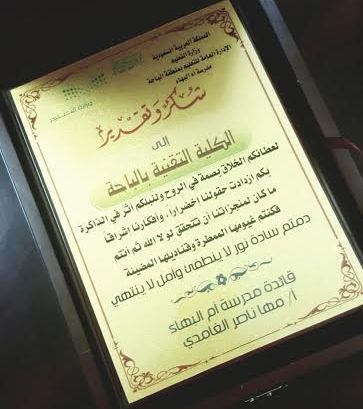 المملكة العربية السعودية
وزارة التعليم
الإدارة العامة للتعليم بمنطقة الباحة
مدرسة أم البهاء
وزارة التعليم
شكر وتقدير
إلى
الكلية التقنية بالباحة
لعطائكم الخلاق بصمة في الروح ولنبلكم أثر في الذاكرة
بكم ازدادت حقولنا إخضراراً، وأفكارنا إشراقاً
ما كان لمنجزاتنا أن تتحقق لو لا الله ثم أنتم
فكنتم غيومها الممطرة وقناديلها المضيئة
دمتم سادة نور لا ينطفئ وأمل لا ينتهي
قائدة مدرسة أم البهاء
أ/ مها ناصر الغامدي